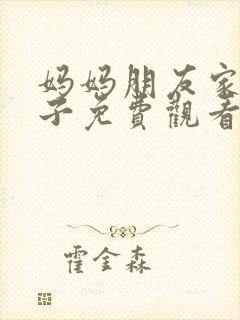 妈妈朋友家
子免費觀看
霍金森